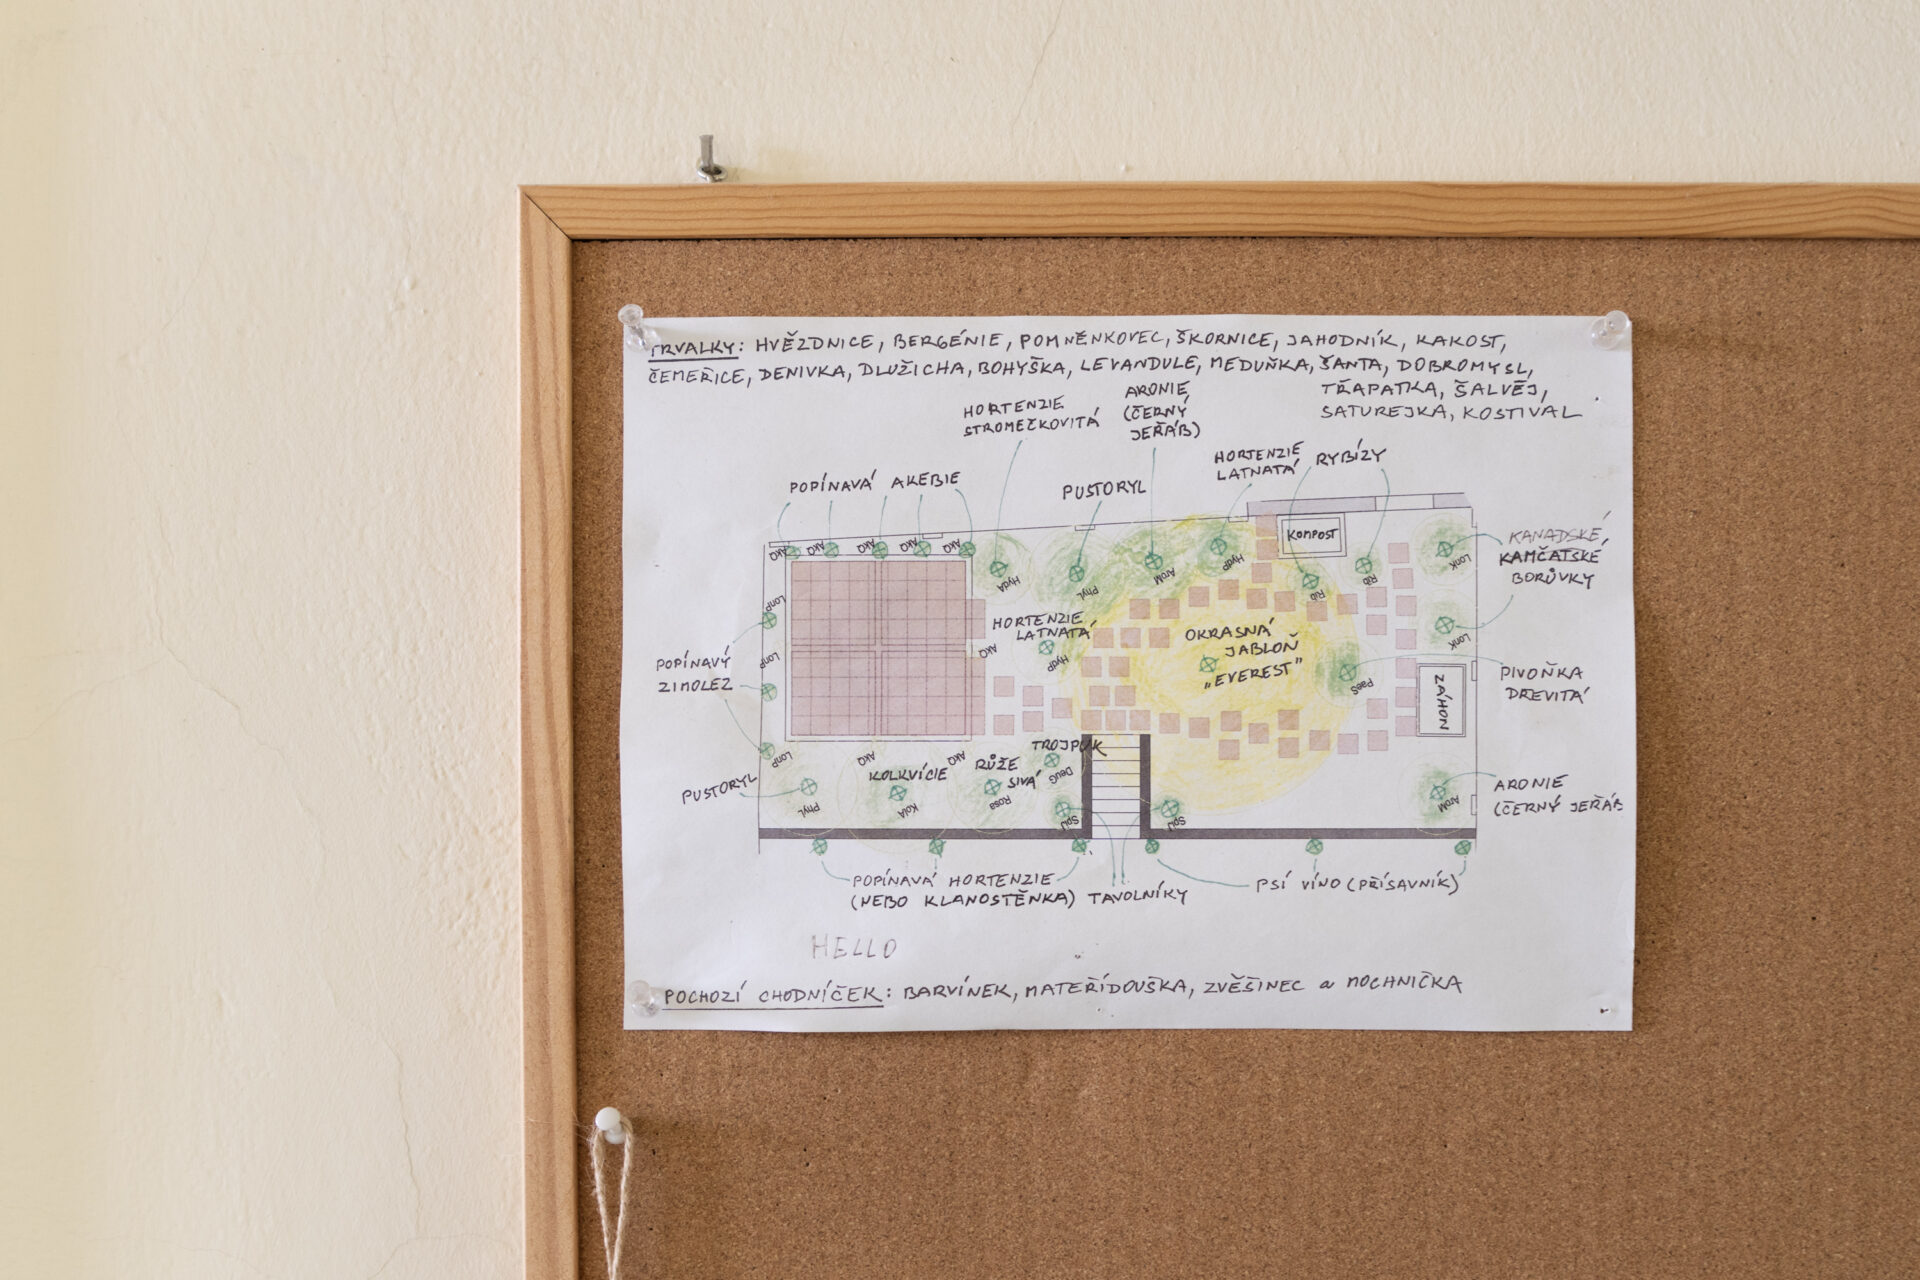 TRVALKY: HVĚZDNICE, BERGÉNIE, POMNĚNKOVEC, ŠKORNICE, JAHODNÍK, KAKOST,
ČEMEŘICE, DENIVKA, DLUŽICHA, BOHYŠKA, LEVANDULE, MEDUŇKA, ŠANTA, DOBROMYSL,
TŘAPATKA, ŠALVĚJ,
SATUREJKA, KOSTIVAL
HORTENZIE
STROMEČKOVITÁ
ARONIE
(ČERNÝ
JEŘÁB)
HORTENZIE
LATNATÁ
RYBÍZY
POPÍNAVÁ AKEBIE
PUSTORYL
KOMPOST
KANADSKÉ,
KAMČATSKÉ
BORŮVKY
AkQ AkQ AkQ AkQ AkQ
HydA
PhyL
AroM
HydP
Rib
Rib
LonK
LonP
HORTENZIE
LATNATÁ
AkQ
HydP
OKRASNÁ
JABLOŇ
„EVEREST"
LonK
POPÍNAVÝ
ZIMOLEZ
LonP
PaeS
PIVOŇKA
DŘEVITÁ
ZÁHON
LonP
AkQ
AkQ
TROJPUK
PUSTORYL
KOLKVÍCIE
RŮŽE
SIVÁ
DeuG
PhyL
KolA
Rosa
SpiJ
SpiJ
AroM
ARONIE
(ČERNÝ JEŘÁB
POPÍNAVÁ HORTENZIE
(NEBO KLANOSTĚNKA)
TAVOLNÍKY
PSÍ VÍNO (PŘÍSAVNÍK)
HELLO
POCHOZÍ CHODNÍČEK: BARVÍNEK, MATEŘÍDOUŠKA, ZVĚŠINEC a MOCHNIČKA